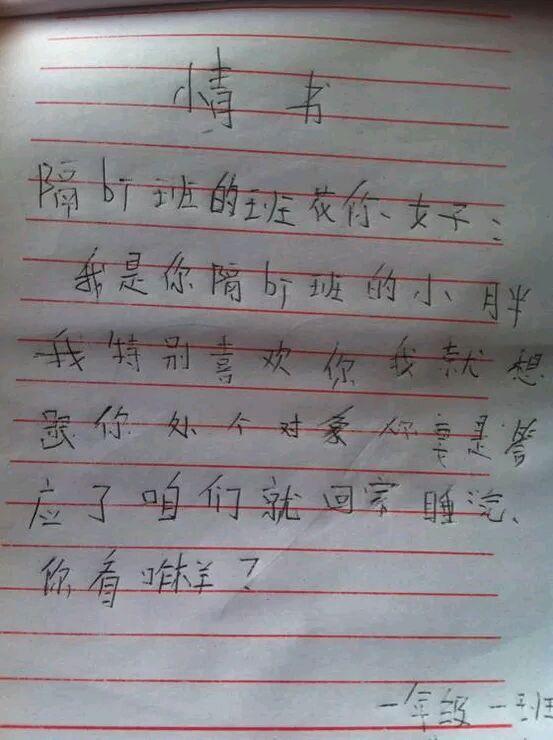 情书
隔bi班的班花你、女子:
我是你隔bi班的小月半
我特别喜欢你我就想
跟你处个对象你要是答
应了咱们就回家睡
你看咋样?
一年级一班